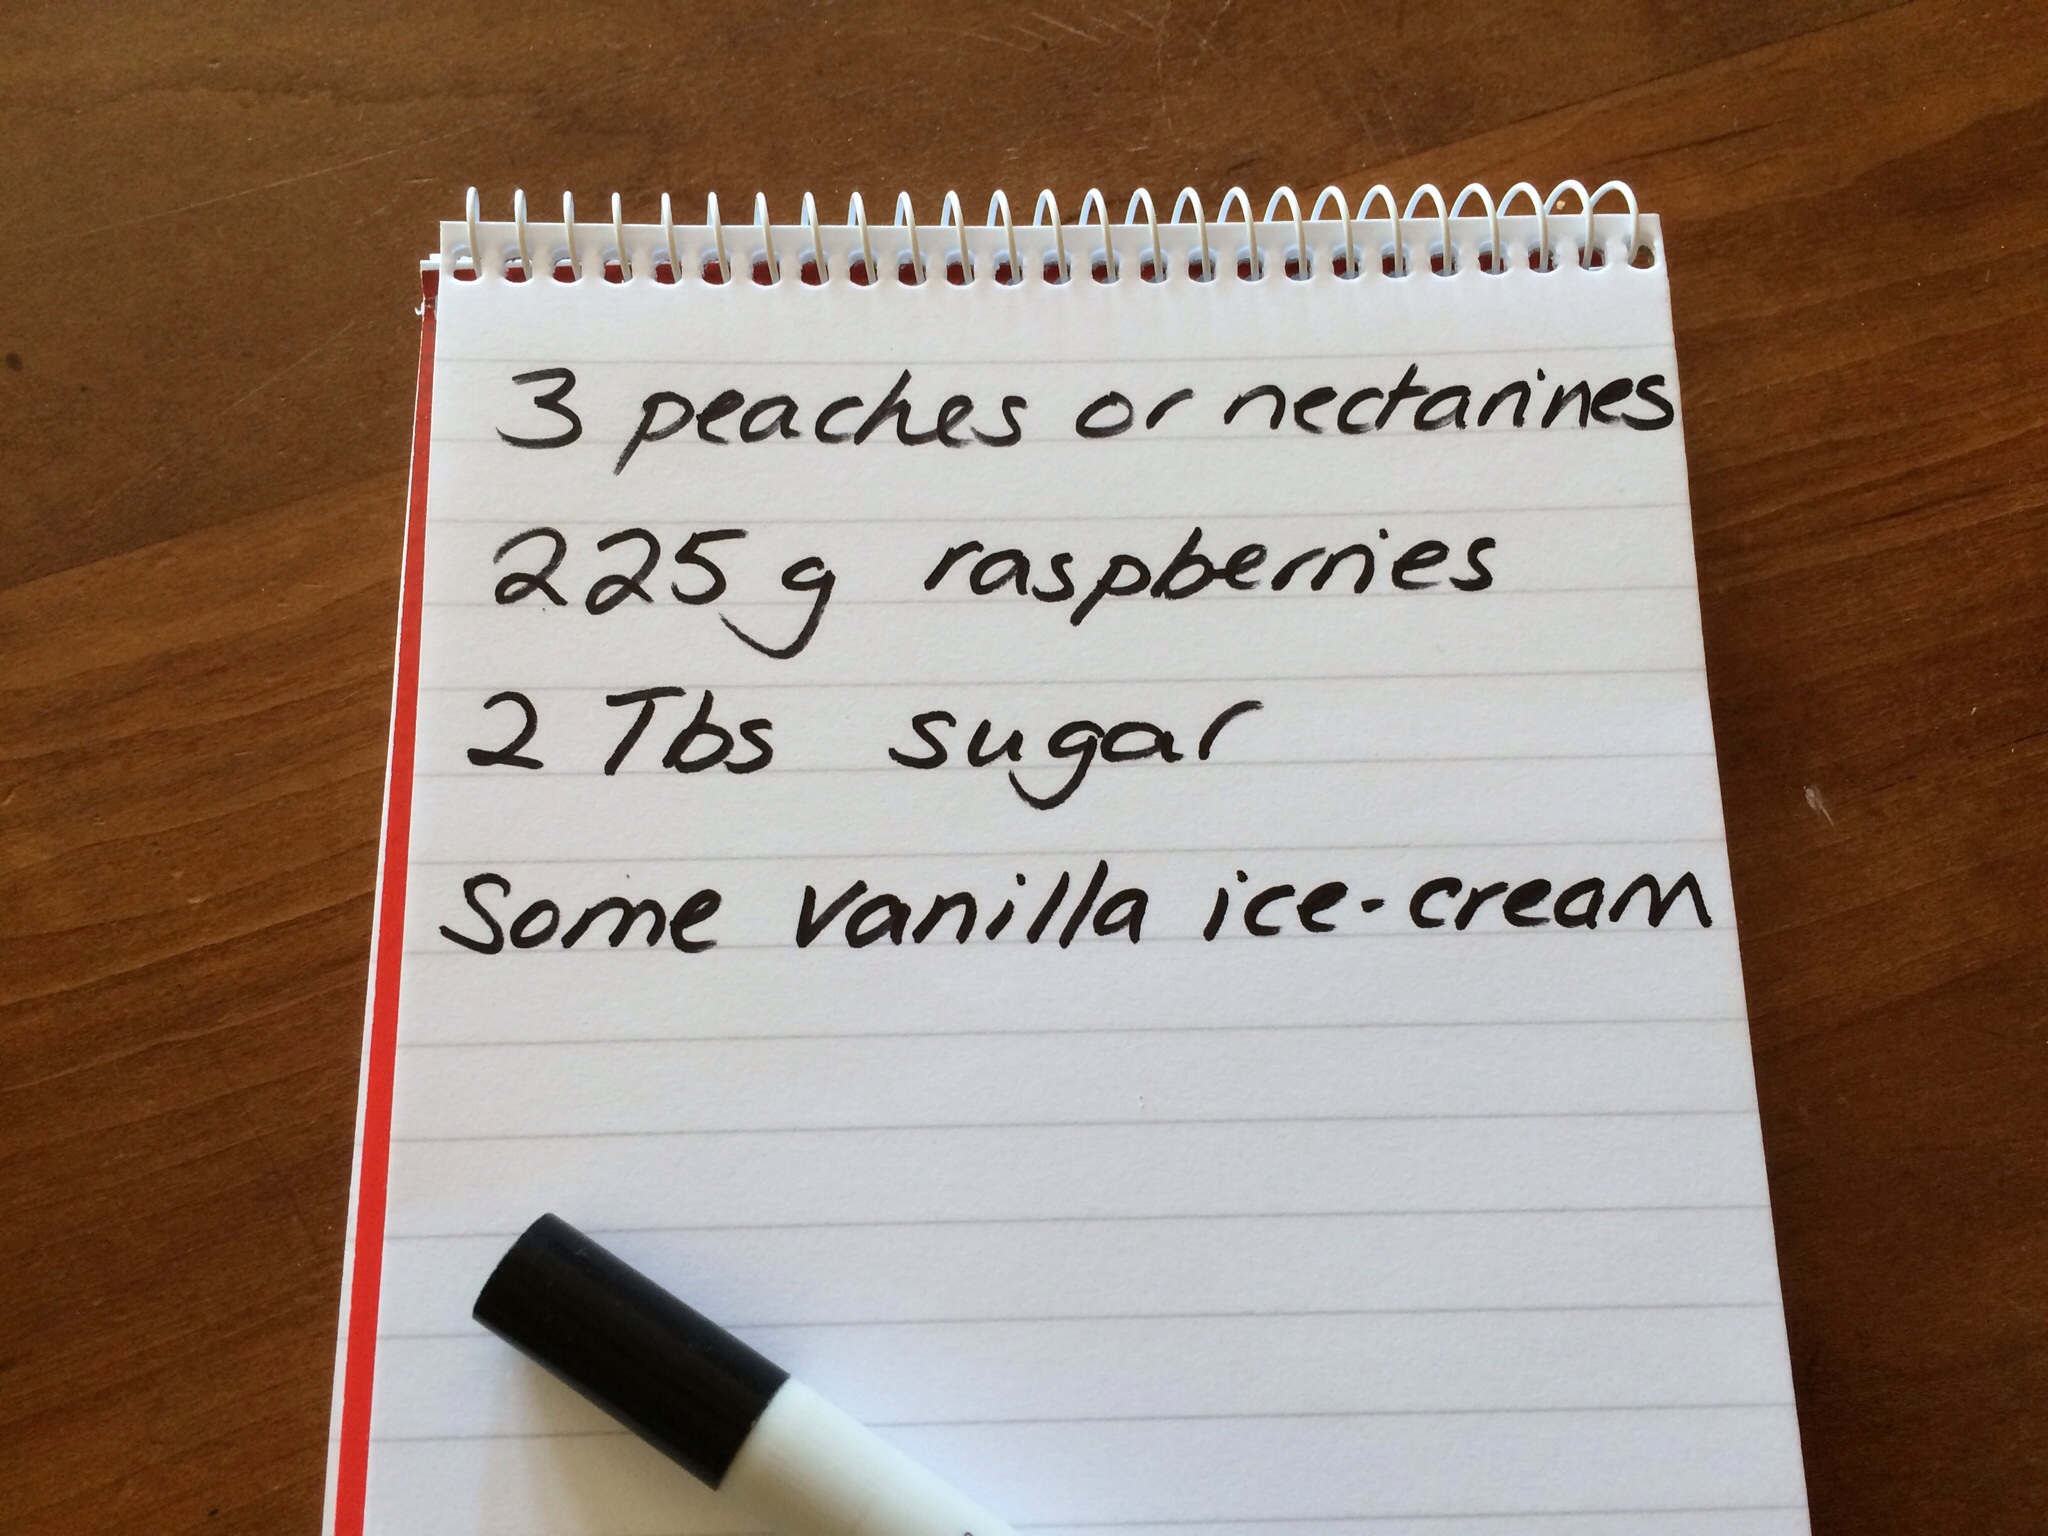 3 peaches or nectarines
225g raspberries
2 Tbs sugar
Some vanilla ice-cream